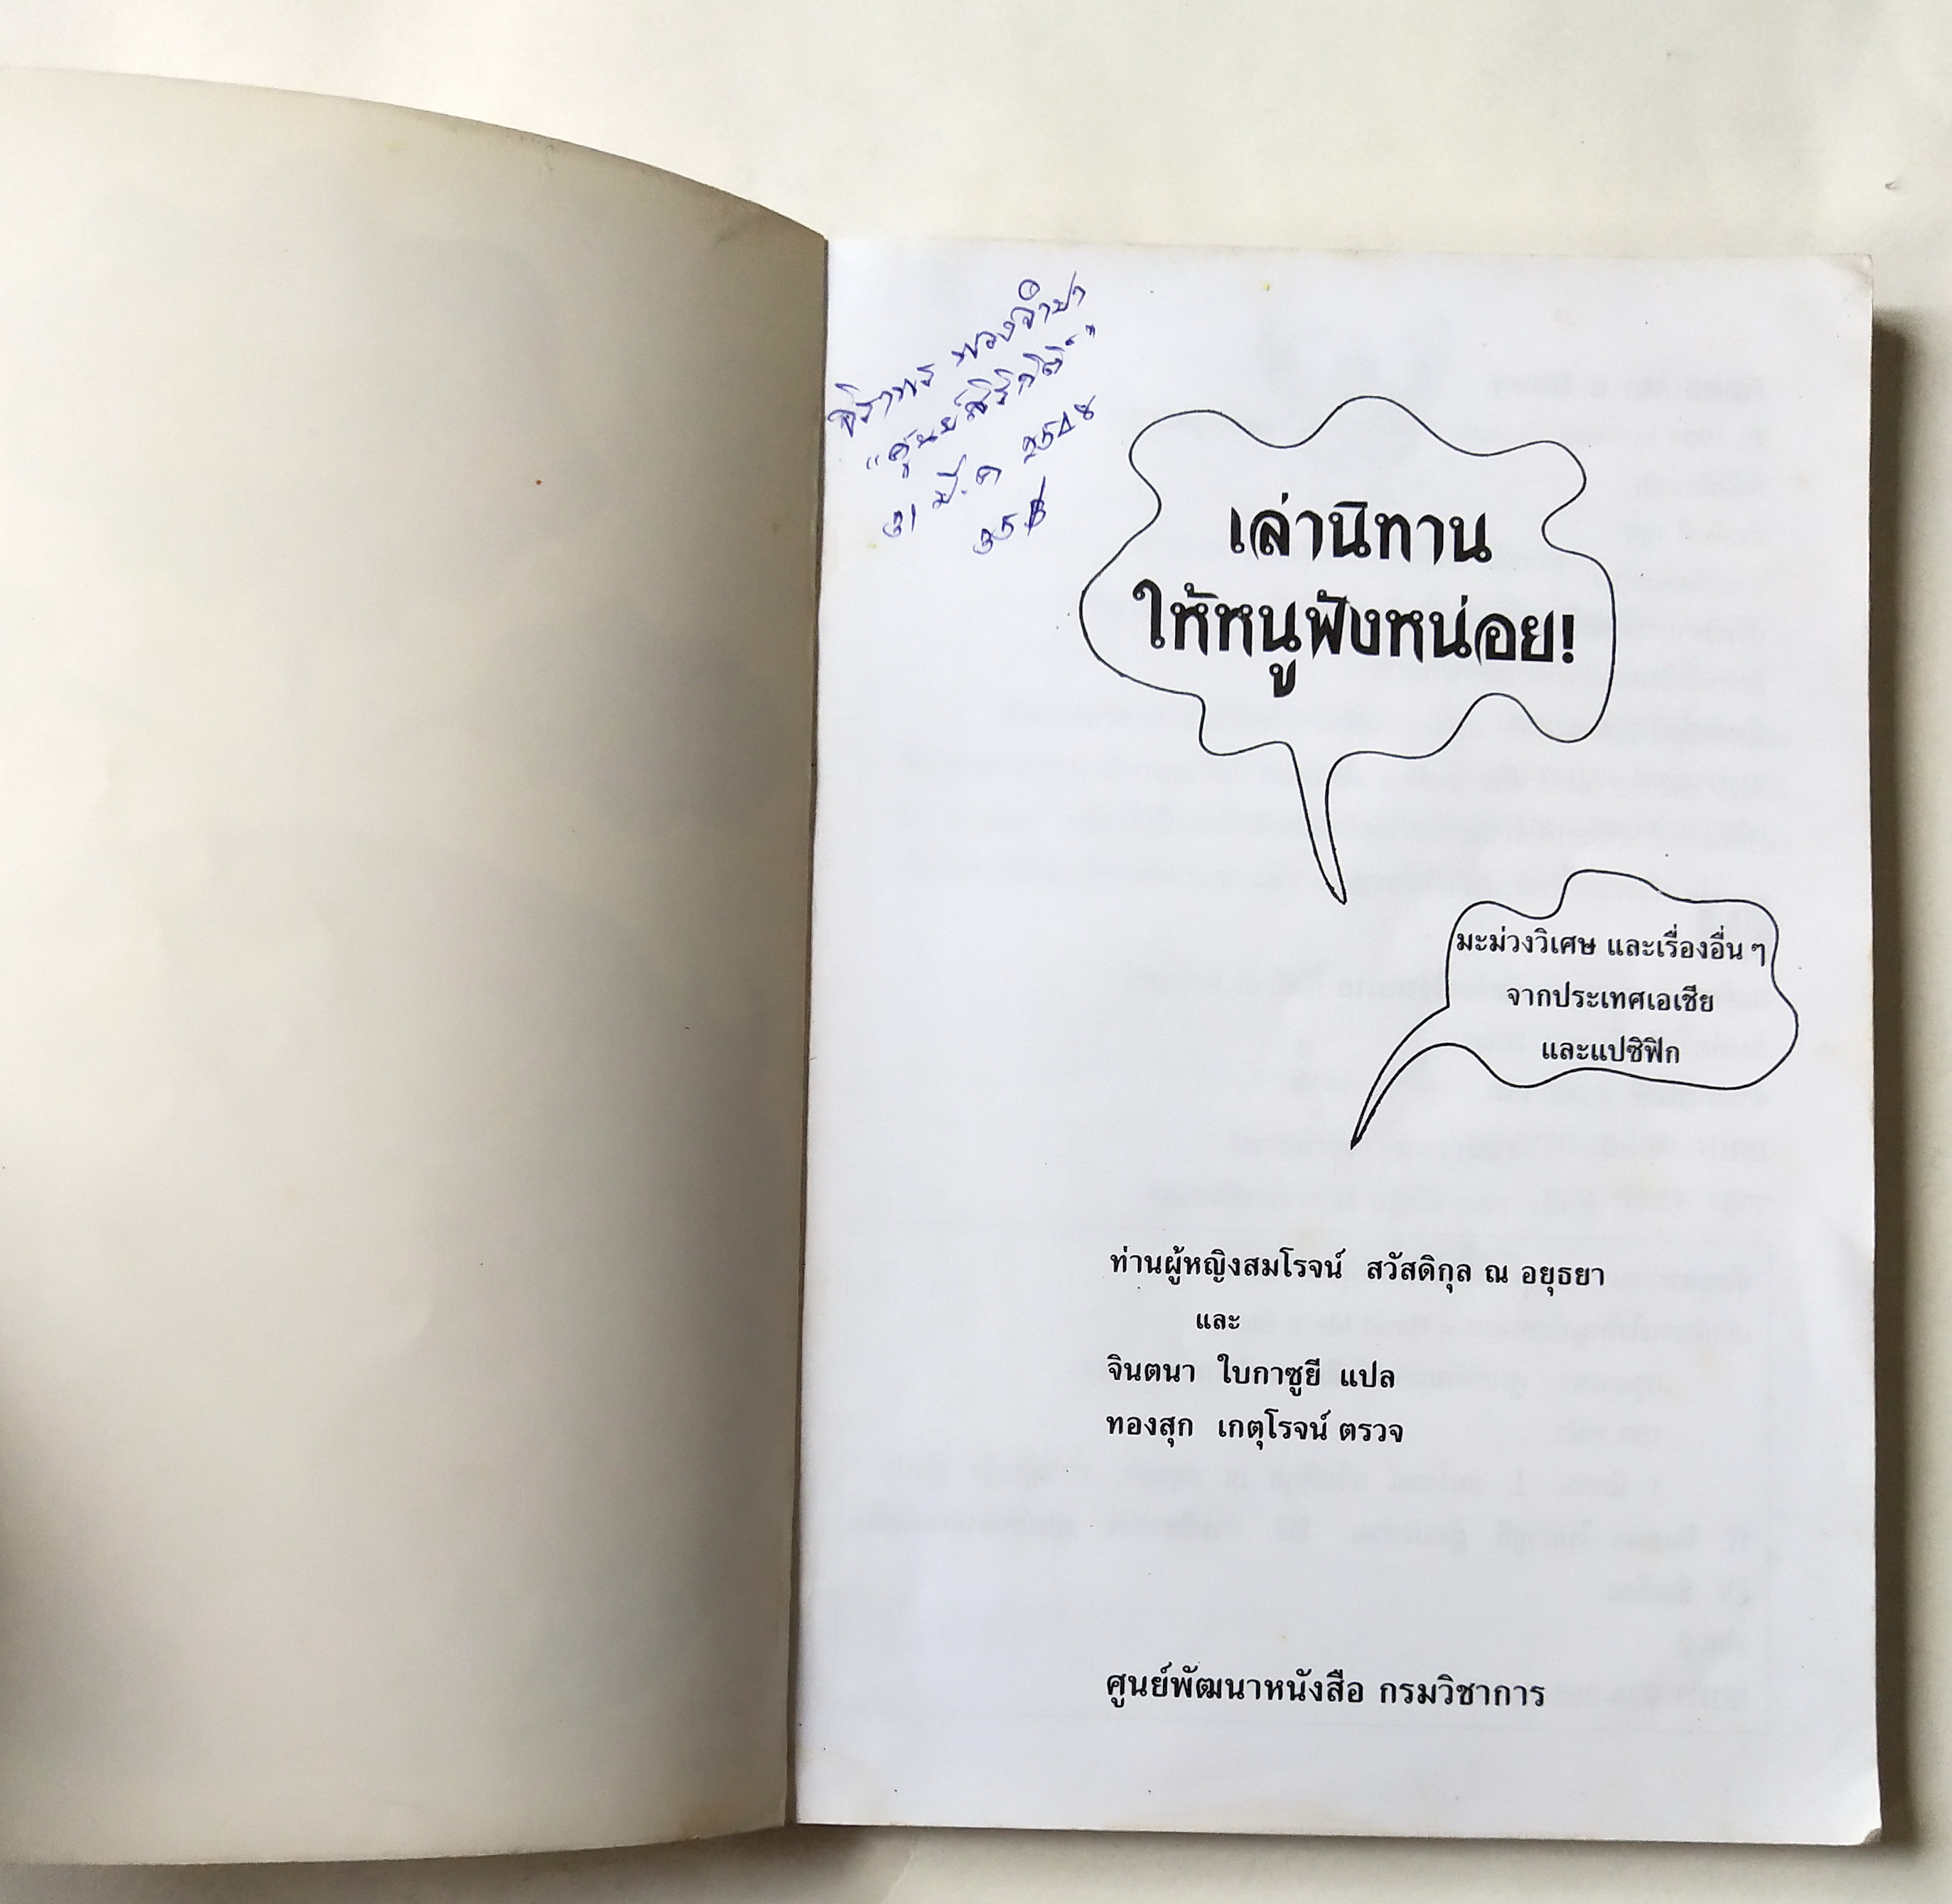 จิราพร ทองจำปา
"ศูนย์สิริกิติ์"
31 มี.ค 2548
35฿
เล่านิทาน
ให้หนูฟังหน่อย!
มะม่วงวิเศษ และเรื่องอื่น ๆ
จากประเทศเอเชีย
และแปซิฟิก
ท่านผู้หญิงสมโรจน์ สวัสดิกุล ณ อยุธยา
และ
จินตนา ใบกาซูยี แปล
ทองสุก เกตุโรจน์ ตรวจ
ศูนย์พัฒนาหนังสือ กรมวิชาการ